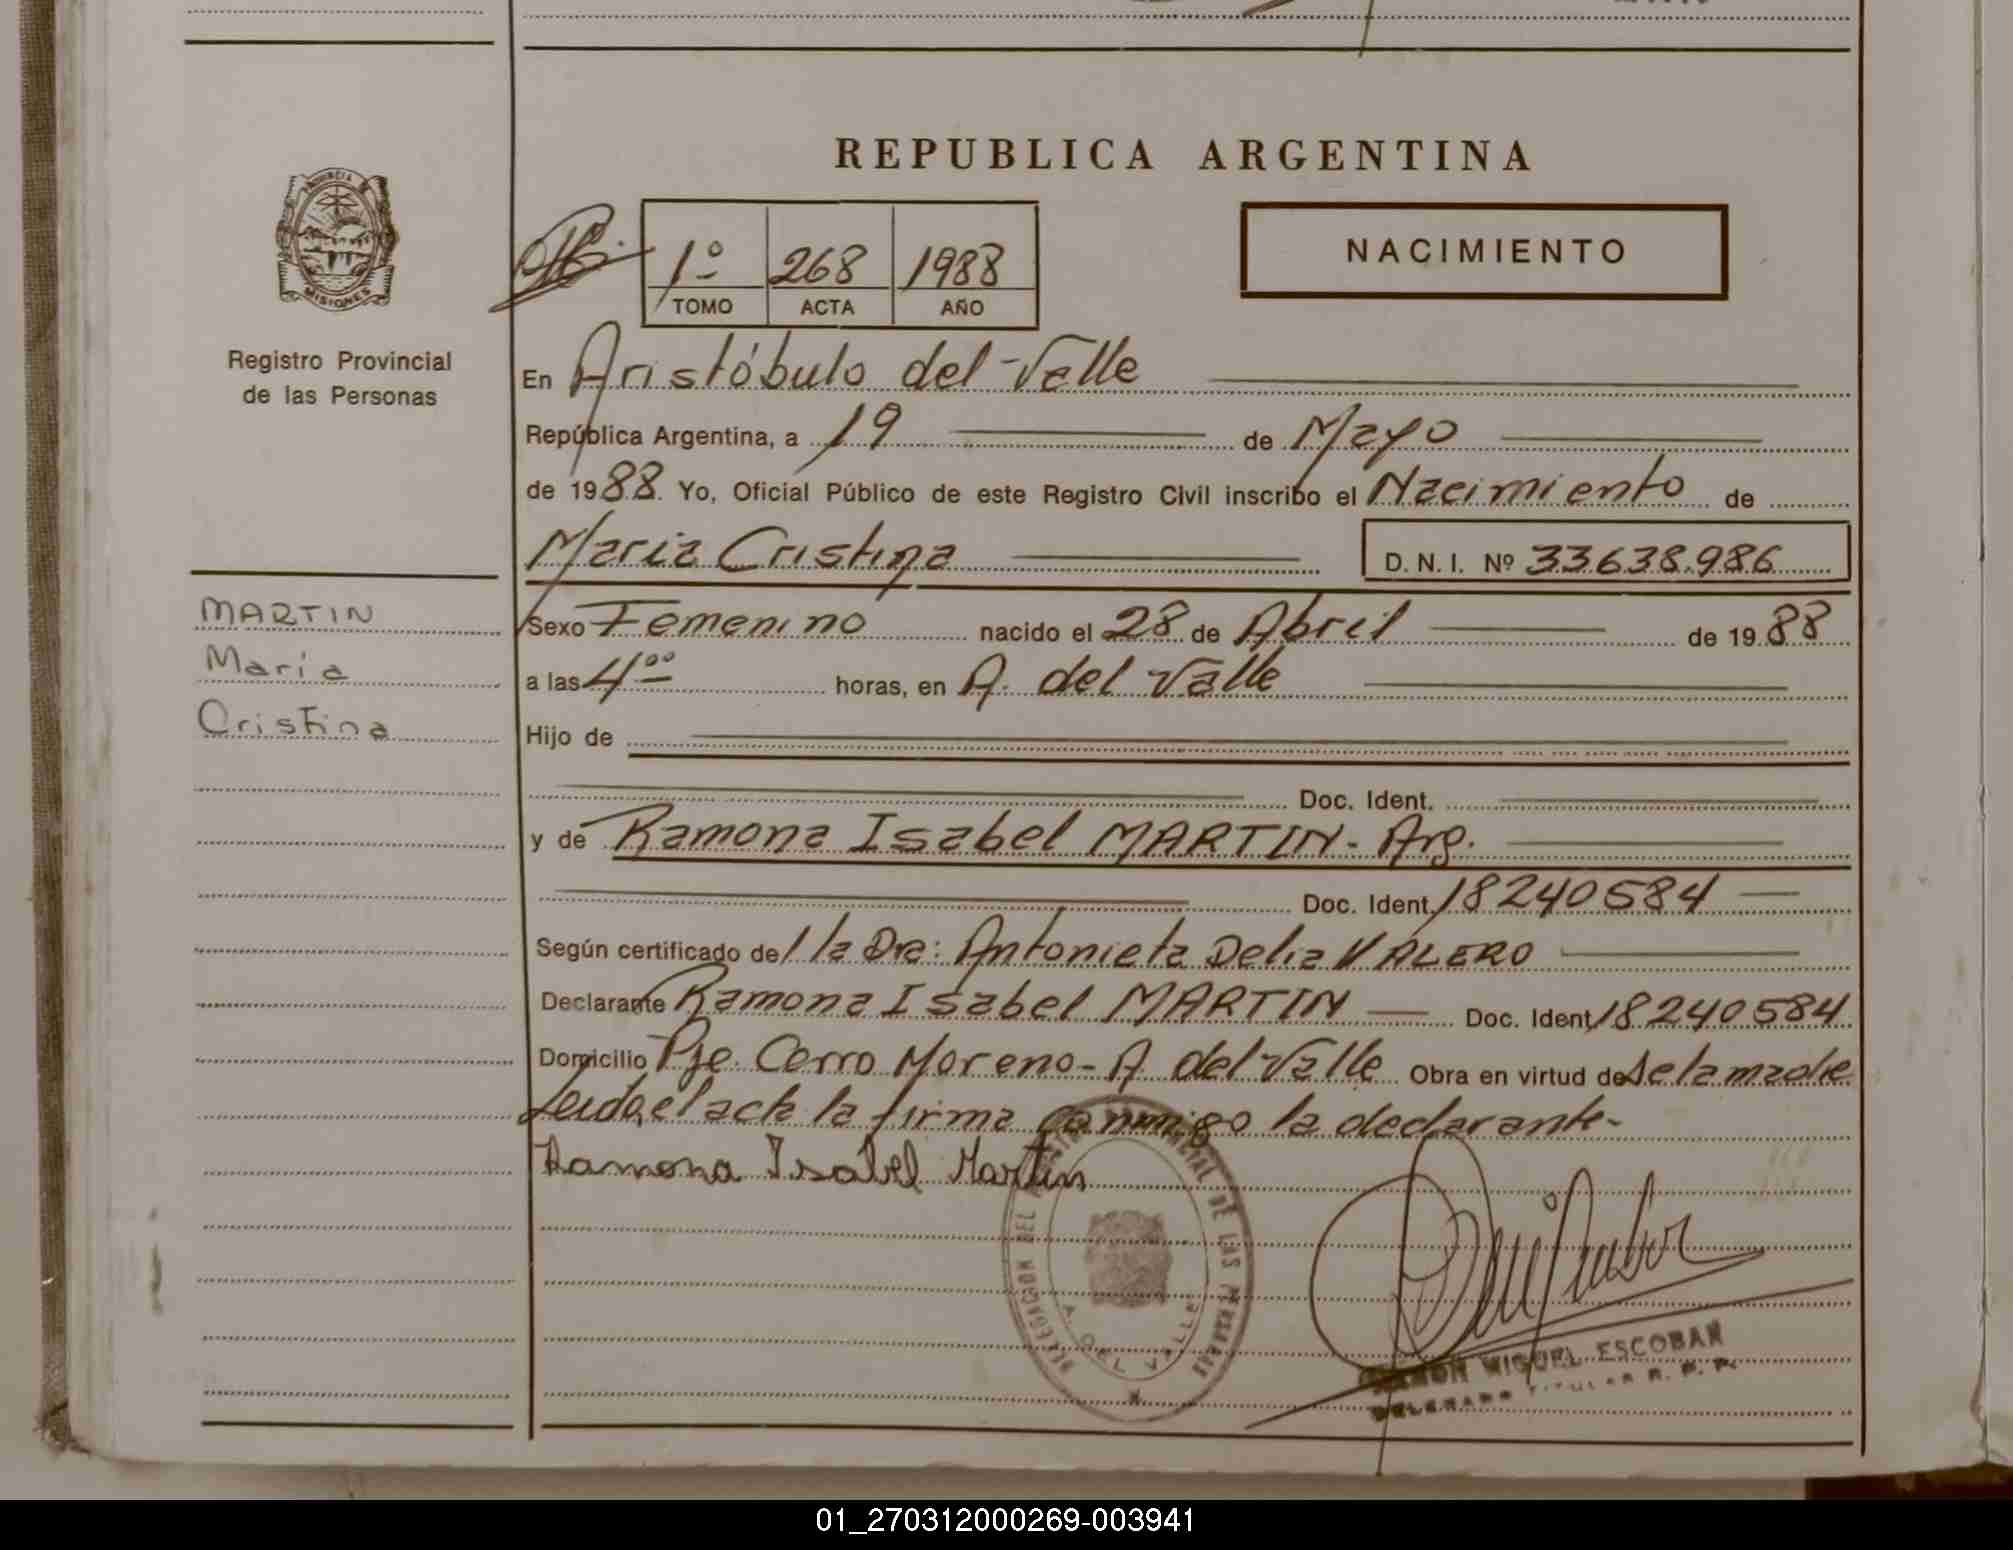 REPUBLICA ARGENTINA
PROVINCIA
MISIONES
Registro Provincial
de las Personas
1º 268 1988
TOMO ACTA AÑO
NACIMIENTO
En Aristóbulo del Valle
República Argentina, a 19 de Mayo
de 1988. Yo, Oficial Público de este Registro Civil inscribo el Nacimiento de
Maria Cristina D.N.I. Nº 33638.986
MARTIN
María
Cristina
Sexo Femenino nacido el 28 de Abril de 1988
a las 4ºº horas, en A. del Valle
Hijo de
Doc. Ident.
y de Ramona Isabel MARTIN - Arg.
Doc. Ident. 18240584
Según certificado de l la Dra: Antonieta Delia VALERO
Declarante Ramona Isabel MARTIN Doc. Ident. 18240584
Domicilio Pje. Cerro Moreno - A. del Valle Obra en virtud de de la madre
Leida el acta la firma conmigo la declarante-
Ramona Isabel Martin
DELEGACION DEL REGISTRO PROVINCIAL DE LAS PERSONAS
A. DEL VALLE
RAMON MIGUEL ESCOBAR
DELEGADO TITULAR R. P. P.
01_270312000269-003941